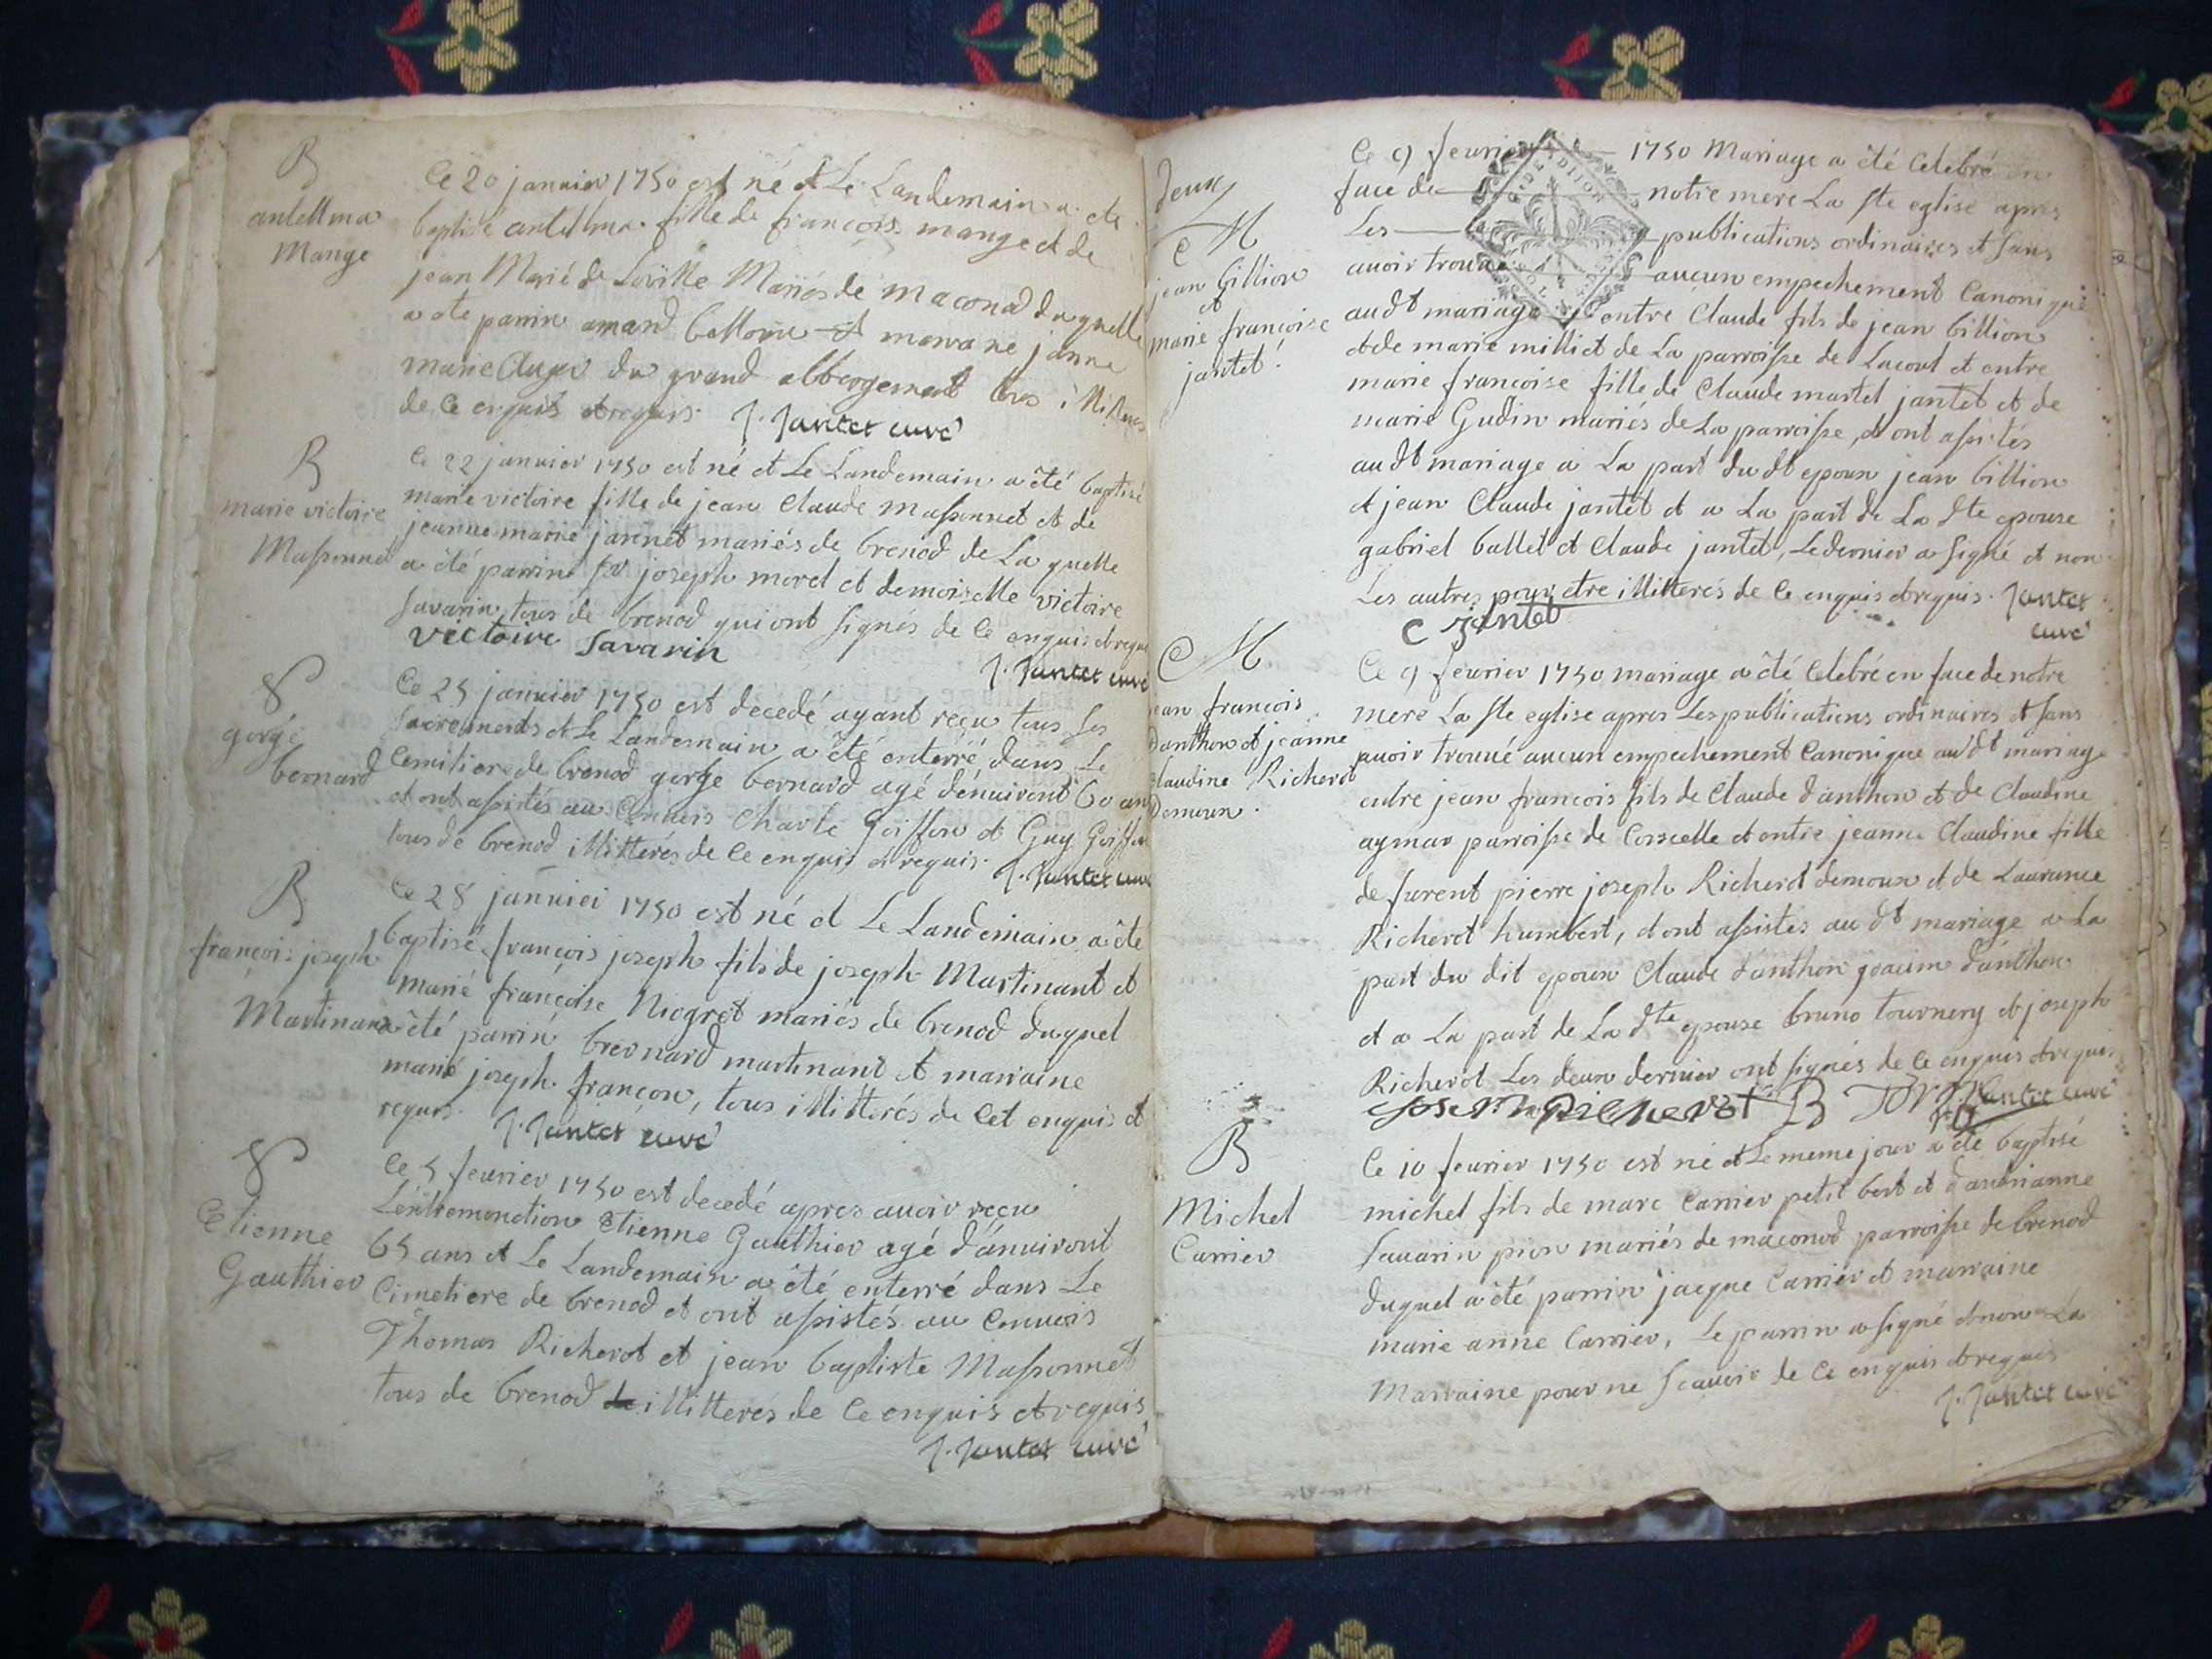 B
antellma
Mange
Ce 20 janvier 1750 est né et Le Landemain a ete
baptisé antellma fille de françois mange et de
jean Marie de Mariés de maconod du quelle
a ete parrin amand et maraine janne
marie du grand abbergement tous illiteres
de ce enquis et requis. J. Jantet curé
B
marie victoire
Massonnet
Ce 22 janvier 1750 est né et Le Landemain a été baptisé
marie victoire fille de jean Claude Massonnet et de
jeanne marie jannet mariés de brenod de La quelle
a été parrin joseph morel et demoiselle victoire
Savarin tous de brenod qui ont signés de ce enquis et requis
victoire Savarin
J. Jantet curé
gorge
bernard
Ce 25 janvier 1750 est decedé ayant reçu tous ses
Sacrements et Le Landemain a été enterré dans Le
Cemitiere de brenod gorge bernard agé d'enuiront 60 ans
et ont assistés au Conuois Charle Goiffon et Guy Goiffon
tous de brenod illitterés de ce enquis et requis. J. Jantet curé
B
françois joseph
Martinant
Ce 28 janvier 1750 est né et Le Landemain a été
baptisé françois joseph fils de joseph Martinant et
marie françoise Niogret mariés de brenod duquel
a été parrin brevnard martinant et marraine
marie joseph françon, tous illitterés de Cet enquis et
requis. J. Jantet curé
Etienne
Gauthier
Ce 5 feurier 1750 est decedé apres auoir reçu
L'extremonction Etienne Gauthier agé d'anuiront
65 ans et Le Landemain a été enterré dans Le
Cimetiere de brenod et ont assistés au Conuois
Thomas Richerot et jean baptiste Massonnet
tous de brenod illitterés de ce enquis et requis
J. Jantet curé
deux
M
jean billion
et
marie françoise
jantet
Ce 9 feurier 1750 Mariage a été Celebré en
face de notre mere La Ste eglise apres
Les publications ordinaires et sans
auoir trouué aucun empechement Canonique
audt mariage entre Claude fils de jean billion
et de marie milliet de La parroisse de Lacout et entre
marie francoise fille de Claude martel jantet et de
marie Gudin mariés de La parroisse, et ont assistés
audt mariage a La part dudt epoux jean billion
et jean Claude jantet et a La part de La dte epouse
gabriel ballet et Claude jantet, Le dernier a signé et non
Les autres pour etre illitterés de ce enquis et requis. Jantet
curé
C jantet
M
jean francois
danthon et jeanne
claudine Richerot
demoux.
Ce 9 feurier 1750 mariage a été Celebré en face de notre
mere La Ste eglise apres Les publications ordinaires et sans
auoir trouué aucun empechement Canonique audt mariage
entre jean francois fils de Claude d'anthon et de Claudine
aymar parroisse de Corcelle et entre jeanne Claudine fille
de furent pierre joseph Richerot demoux et de Laurance
Richerot humbert, et ont assistés audt mariage a La
part du dit epoux Claude d'anthon joacim d'anthon
et a La part de La dte epouse bruno tournery et joseph
Richerot Les deux dernier ont signés de ce enquis et requis
joseph Richerot B J. Jantet curé
B
Michel
Carrier
Ce 10 feurier 1750 est né et Le meme jour a été baptisé
michel fils de marc Carrier petit bert et d'andrianne
Sauarin pion mariés de maconod parroisse de brenod
duquel a été parrin jacque Carrier et marraine
marie anne Carrier, Le parrin a signé et non La
Marraine pour ne Scauoir de ce enquis et requis
J. Jantet curé